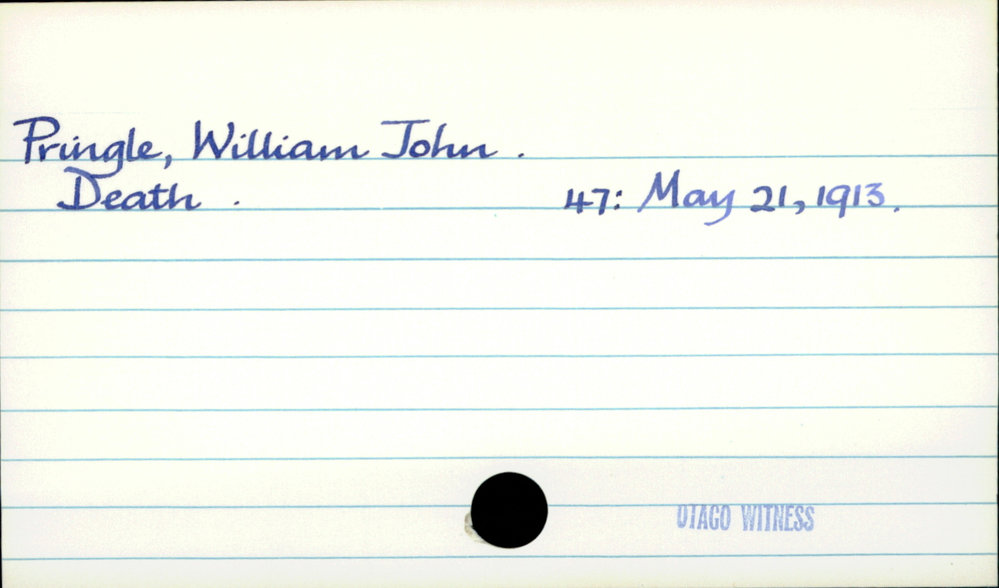 Pringle, William John.
Death. 47: May 21, 1913.
OTAGO WITNESS